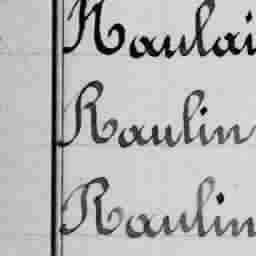 Raulai
Raulin
Raulin